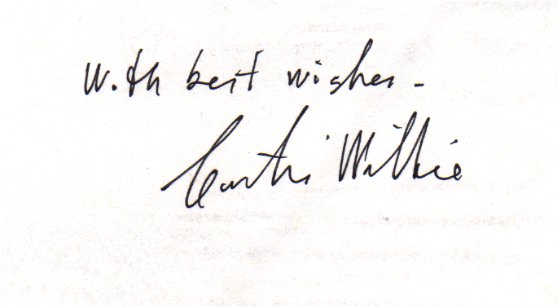 With best wishes -
Curtis Wilkie